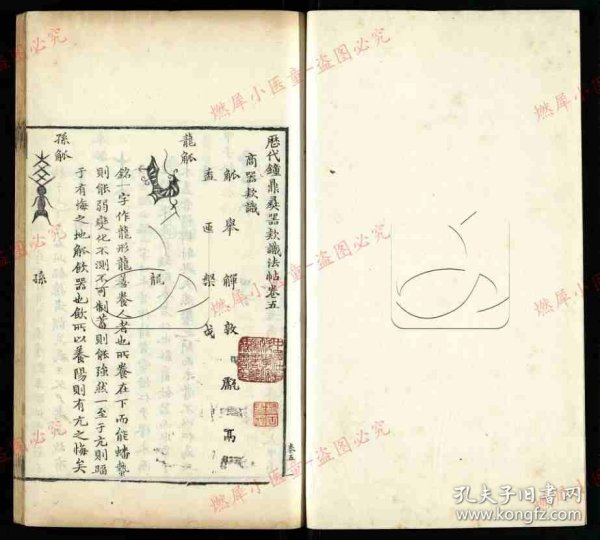 歷代鐘鼎彝器款識法帖卷五
商器款識
觚 舉 觶 敦 甗 鬲
盉 匜 槃 戈
龍觚
龍
銘一字作龍形龍善養人者也所養在下而能蟠蟄
則能弱變化不測不可制蓄則能強然一至于亢則蹈
于有悔之地觚飲器也飲所以養陽則有亢之悔矣
孫觚
孫
卷五
燃犀小医童-盗图必究
燃犀小医童-盗图必究
燃犀小医童-盗图必究
孔夫子旧书网
www.kongfz.com